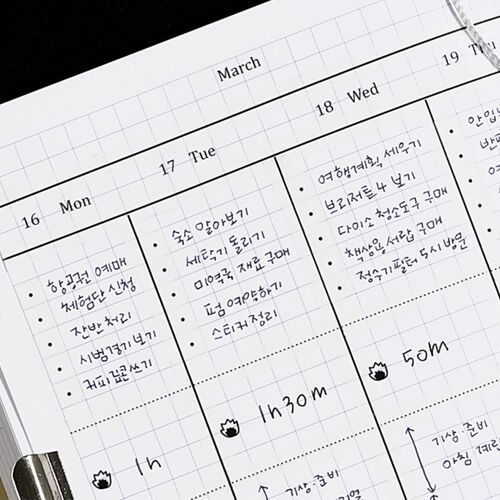 March
16 Mon
항공권 예매
체험단 신청
잔반 처리
시범경기 보기
커피쿠폰쓰기
1h
17 Tue
숙소 알아보기
세탁기 돌리기
미역국 재료 구매
펌 예약하기
스티커 정리
1h 30m
기상·준비
18 Wed
여행계획 세우기
브리저튼4 보기
다이소 청소도구 구매
책상용 서랍 구매
정수기 필터 5시 방문
50m
기상·준비
아침
19